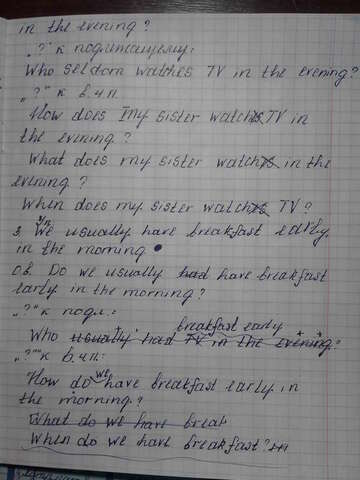 in the evening?
„?" к подлежащему:
Who seldom watches TV in the evening?
„?" к в.ч.п.
How does my sister watches TV in
the evening?
What does my sister watches in the
evening?
When does my sister watches TV?
3. We usually have breakfast early
in the morning.
Об. Do we usually had have breakfast
early in the morning?
„?" к подл.:
breakfast early
Who usually had TV in the evening?
„?" к в.ч.п:
How do we have breakfast early in
the morning?
What do we have break
When do we have breakfast?